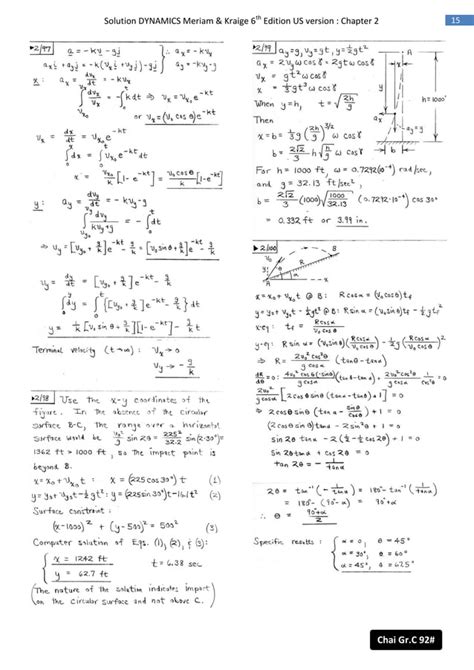 Solution DYNAMICS Meriam & Kraige 6th Edition US version : Chapter 2
15
▶2/97 a = -kv - gj ∴ a_x = -kv_x
a_x i + a_y j = -k(v_x i + v_y j) - gj } a_y = -kv_y - g
x: a_x = dv_x/dt = -kv_x
∫dv_x/v_x = ∫-k dt ⇒ v_x = v_x0 e^-kt
or v_x = (v_0 cos θ)e^-kt
v_x = dx/dt = v_x0 e^-kt
∫dx = ∫v_x0 e^-kt dt
x = v_x0/k [1-e^-kt] = v_0 cos θ/k [1-e^-kt]
y: a_y = dv_y/dt = -kv_y - g
∫dv_y/kv_y+g = -∫dt
⇒ v_y = [v_y0 + g/k] e^-kt - g/k = [v_0 sin θ + g/k] e^-kt - g/k
v_y = dy/dt = [v_y0 + g/k] e^-kt - g/k
∫dy = ∫{[v_y0 + g/k] e^-kt - g/k} dt
y = 1/k [v_0 sin θ + g/k][1-e^-kt] - g/k t
Terminal velocity (t→∞) : v_x → 0
v_y → -g/k
▶2/98 Use the x-y coordinates of the
figure. In the absence of the circular
surface B-C, the range over a horizontal
surface would be v_0²/g sin 2θ = 225²/32.2 sin (2·30°) =
1362 ft > 1000 ft, so the impact point is
beyond B.
x = x_0 + v_x0 t : x = (225 cos 30°) t (1)
y = y_0 + v_y0 t - ½gt² : y = (225 sin 30°) t - 16.1t² (2)
Surface constraint :
(x-1000)² + (y-500)² = 500² (3)
Computer solution of Eqs. (1), (2), & (3):
x = 1242 ft
t = 6.38 sec
y = 62.7 ft
(The nature of the solution indicates impact
on the circular surface and not above C.)
▶2/99 a_y = g, v_y = gt, y = ½gt²
a_x = 2v_y ω cos γ = 2gt ω cos γ
v_x = gt² ω cos γ
x = ⅓gt³ ω cos γ
When y = h, t = √2h/g
Then
x = b = ⅓g (2h/g)^3/2 ω cos γ
b = 2√2/3 h √h/g ω cos γ
A
y
h = 1000'
a_x
a_y = g
b
For h = 1000 ft, ω = 0.7292(10⁻⁴) rad/sec,
and g = 32.13 ft/sec²,
b = 2√2/3 (1000) √1000/32.13 (0.7292·10⁻⁴) cos 30°
= 0.332 ft or 3.99 in.
▶2/100
y
v_0
B
R
θ
α
A
x
x = x_0 + v_x0 t @ B: R cos α = (v_0 cos θ) t_f
y = y_0 + v_y0 t - ½gt² @ B: R sin α = (v_0 sin θ) t_f - ½gt_f²
x-eq: t_f = R cos α/v_0 cos θ
y-eq: R sin α = (v_0 sin θ)(R cos α/v_0 cos θ) - ½g (R cos α/v_0 cos θ)²
⇒ R = 2v_0² cos² θ/g cos α (tan θ - tan α)
dR/dθ = 0: 4v_0² cos θ(-sin θ)/g cos α (tan θ - tan α) + 2v_0² cos² θ/g cos α · 1/cos² θ = 0
⇒ 2 cos θ sin θ (tan α - sin θ/cos θ) + 1 = 0
(2 cos θ sin θ) tan α - 2 sin² θ + 1 = 0
sin 2θ tan α - 2(½ - ½ cos 2θ) + 1 = 0
sin 2θ tan α + cos 2θ = 0
tan 2θ = -1/tan α
2θ = tan⁻¹(-1/tan α) = 180° - tan⁻¹(1/tan α)
= 180° - (90° - α) = 90° + α
∴ θ = 90° + α/2
Specific results :
α = 0, θ = 45°
α = 30°, θ = 60°
α = 45°, θ = 67.5°
Chai Gr.C 92#